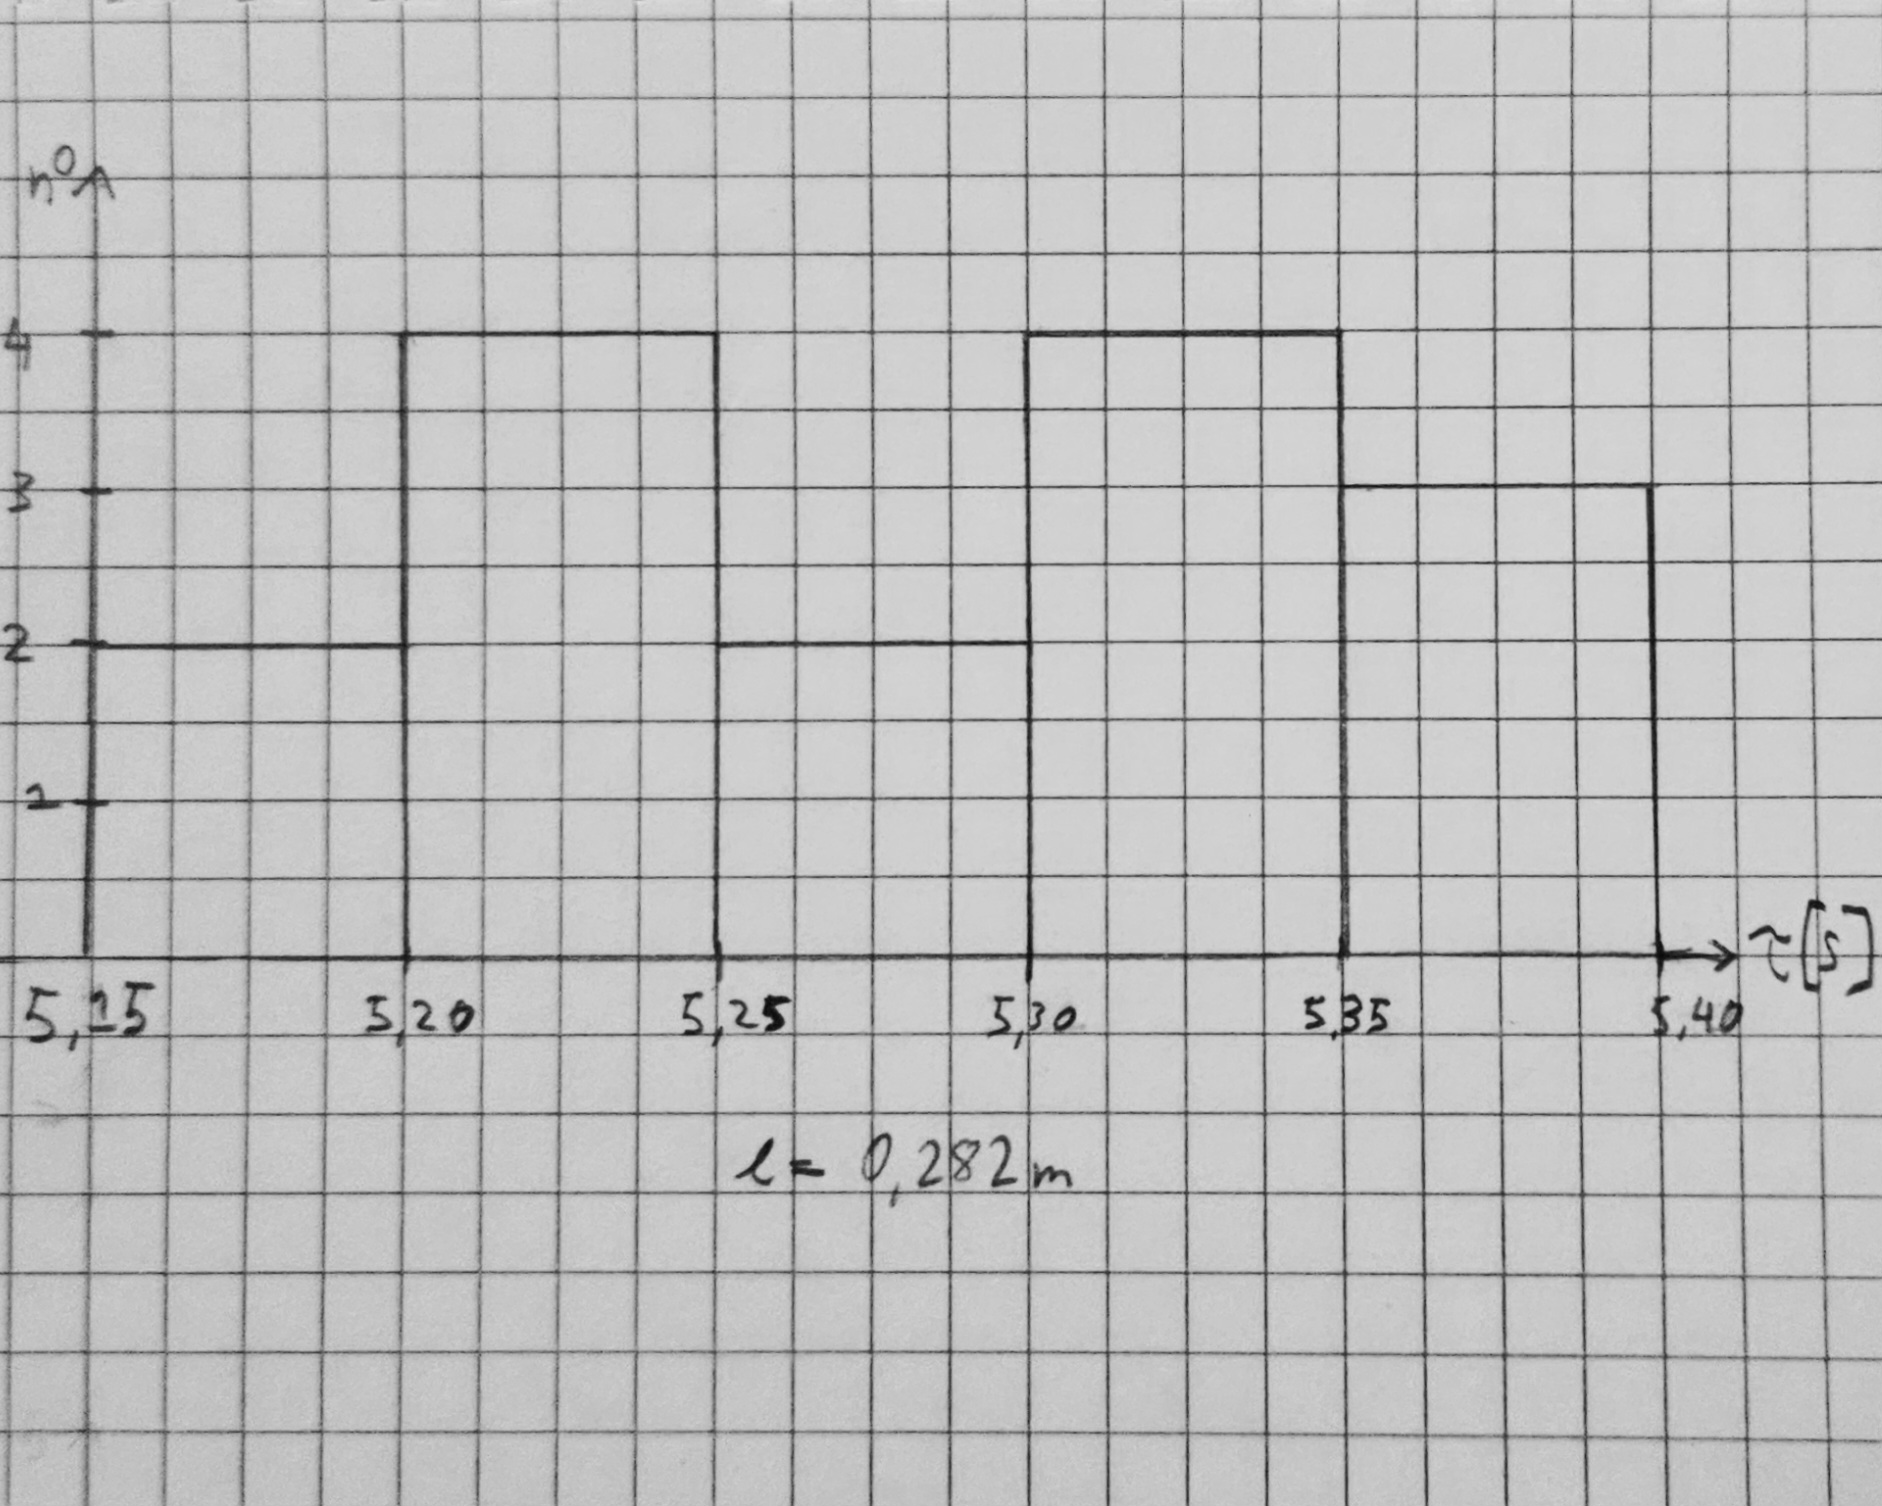 n⁰
4
3
2
1
τ[s]
5,15 5,20 5,25 5,30 5,35 5,40
l = 0,282m